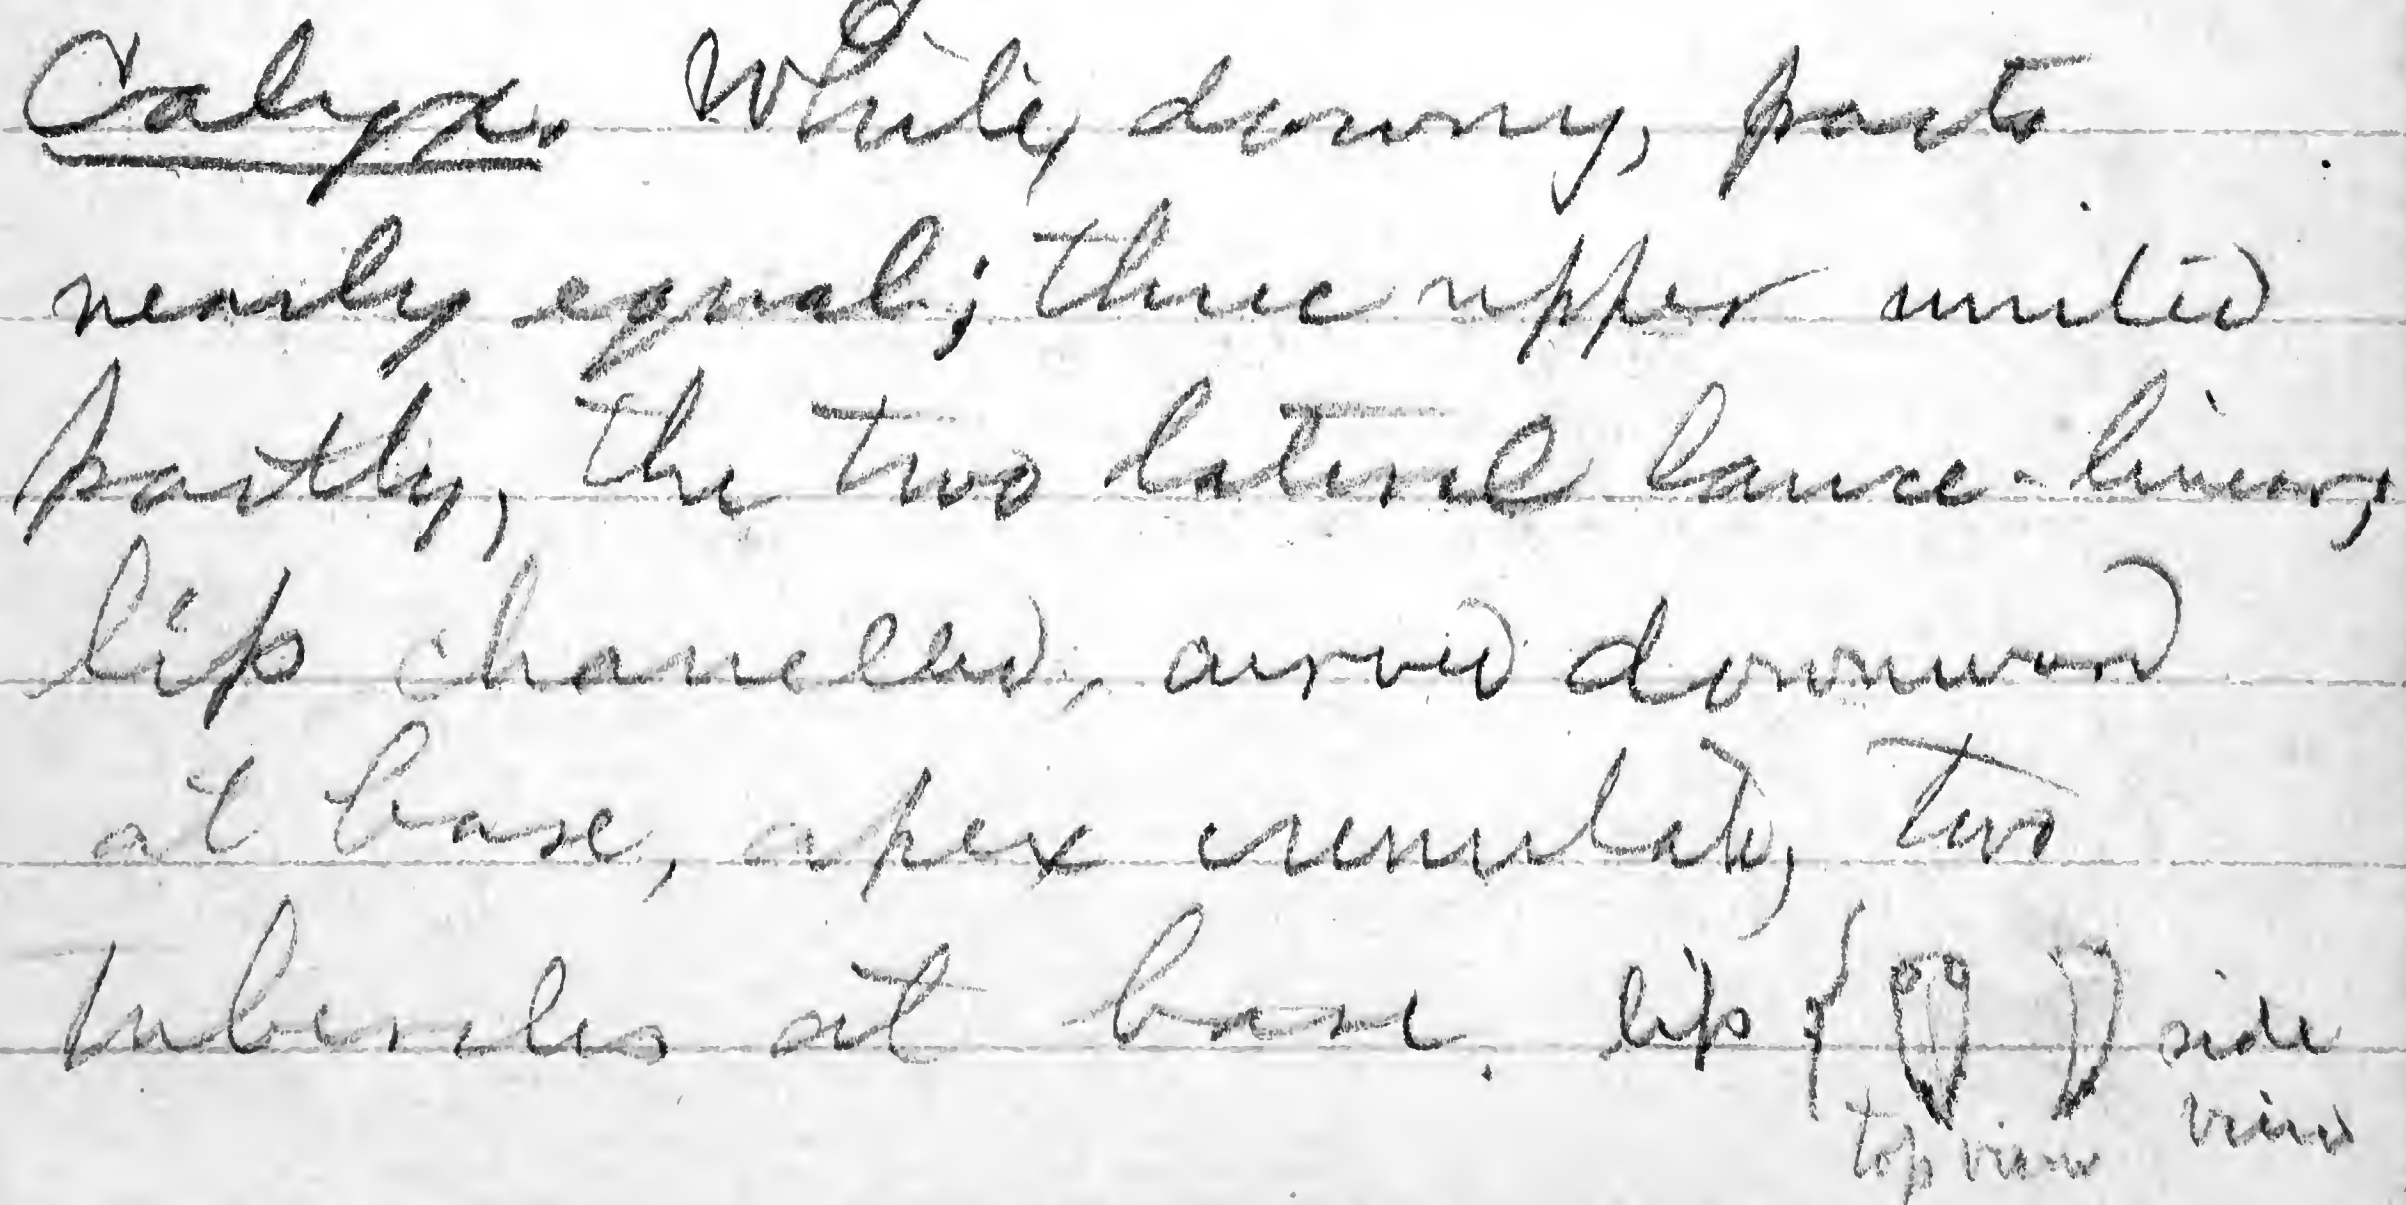 Calyx. Whitey downy, parts
nearly equal; three upper united
partly, the two lateral lance-linear,
lip channelled, curved downward
at base, apex crenulate, two
tubercles at base. lip { side
top view view